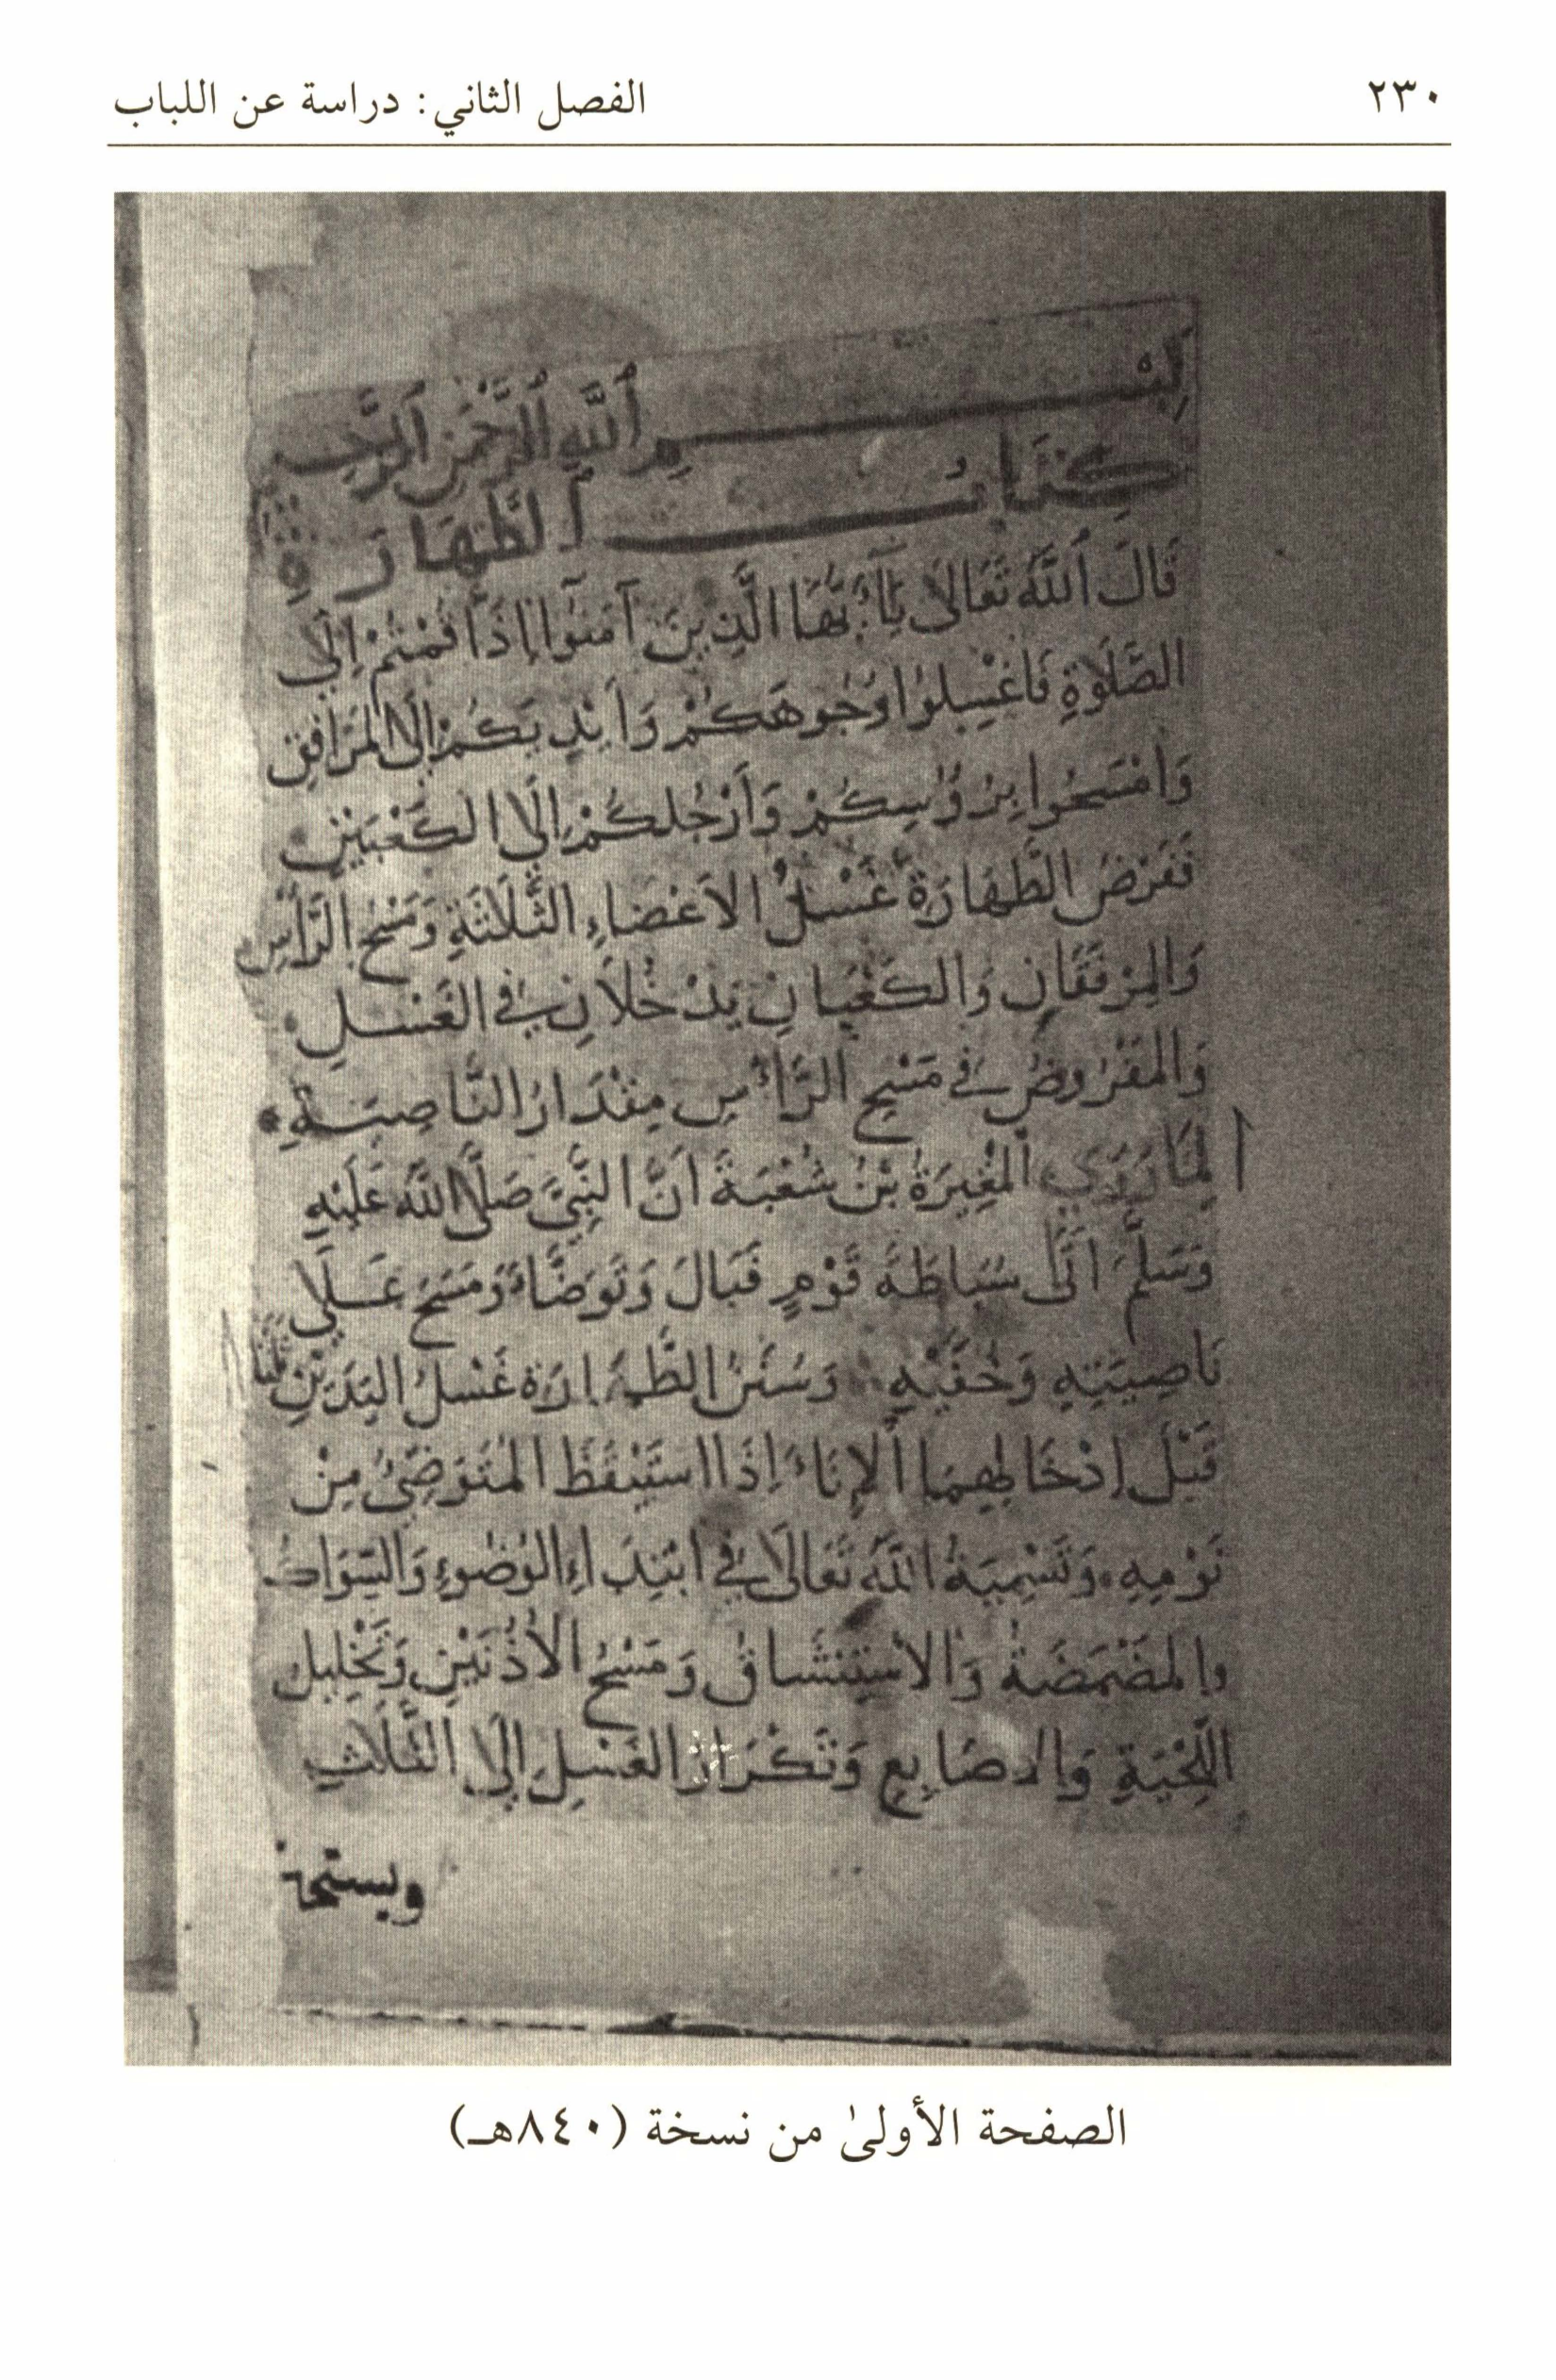 ٢٣٠
الفصل الثاني: دراسة عن اللباب
بِسْمِ ٱللَّهِ ٱلرَّحْمَٰنِ ٱلرَّحِيمِ
كِتَابُ ٱلطَّهَارَةِ
قَالَ ٱللَّهُ تَعَالَى يَآءَيُّهَا الَّذِينَ آمَنُوا إِذَا قُمْتُمْ إِلَى
الصَّلَوٰةِ فَاغْسِلُوا وُجُوهَكُمْ وَأَيْدِيَكُمْ إِلَى الْمَرَافِقِ
وَامْسَحُوا بِرُؤُسِكُمْ وَأَرْجُلَكُمْ إِلَى الْكَعْبَيْنِ
فَفَرْضُ الطَّهَارَةِ غَسْلُ الأَعْضَاءِ الثَّلَاثَةِ وَمَسْحُ الرَّأْسِ
وَالْمِرْفَقَانِ وَالْكَعْبَانِ يَدْخُلَانِ فِي الْغَسْلِ
وَالْمَفْرُوضُ فِي مَسْحِ الرَّأْسِ مِقْدَارُ النَّاصِيَةِ
لِمَا رَوَى الْمُغِيرَةُ بْنُ شُعْبَةَ أَنَّ النَّبِيَّ صَلَّى اللَّهُ عَلَيْهِ
وَسَلَّمَ أَتَى سُبَاطَةَ قَوْمٍ فَبَالَ وَتَوَضَّأَ وَمَسَحَ عَلَى
نَاصِيَتِهِ وَخُفَّيْهِ وَسُنَنُ الطَّهَارَةِ غَسْلُ الْيَدَيْنِ ثَلَثًا
قَبْلَ إِدْخَالِهِمَا الْإِنَاءَ إِذَا اسْتَيْقَظَ الْمُتَوَضِّئُ مِنْ
نَوْمِهِ وَتَسْمِيَةُ اللَّهِ تَعَالَى فِي ابْتِدَاءِ الْوُضُوءِ وَالسِّوَاكُ
وَالْمَضْمَضَةُ وَالِاسْتِنْشَاقُ وَمَسْحُ الْأُذُنَيْنِ وَتَخْلِيلُ
اللِّحْيَةِ وَالْأَصَابِعِ وَتَكْرَارُ الْغَسْلِ إِلَى الثَّلَاثِ
ويستحب
الصفحة الأولىٰ من نسخة (٨٤٠هـ)